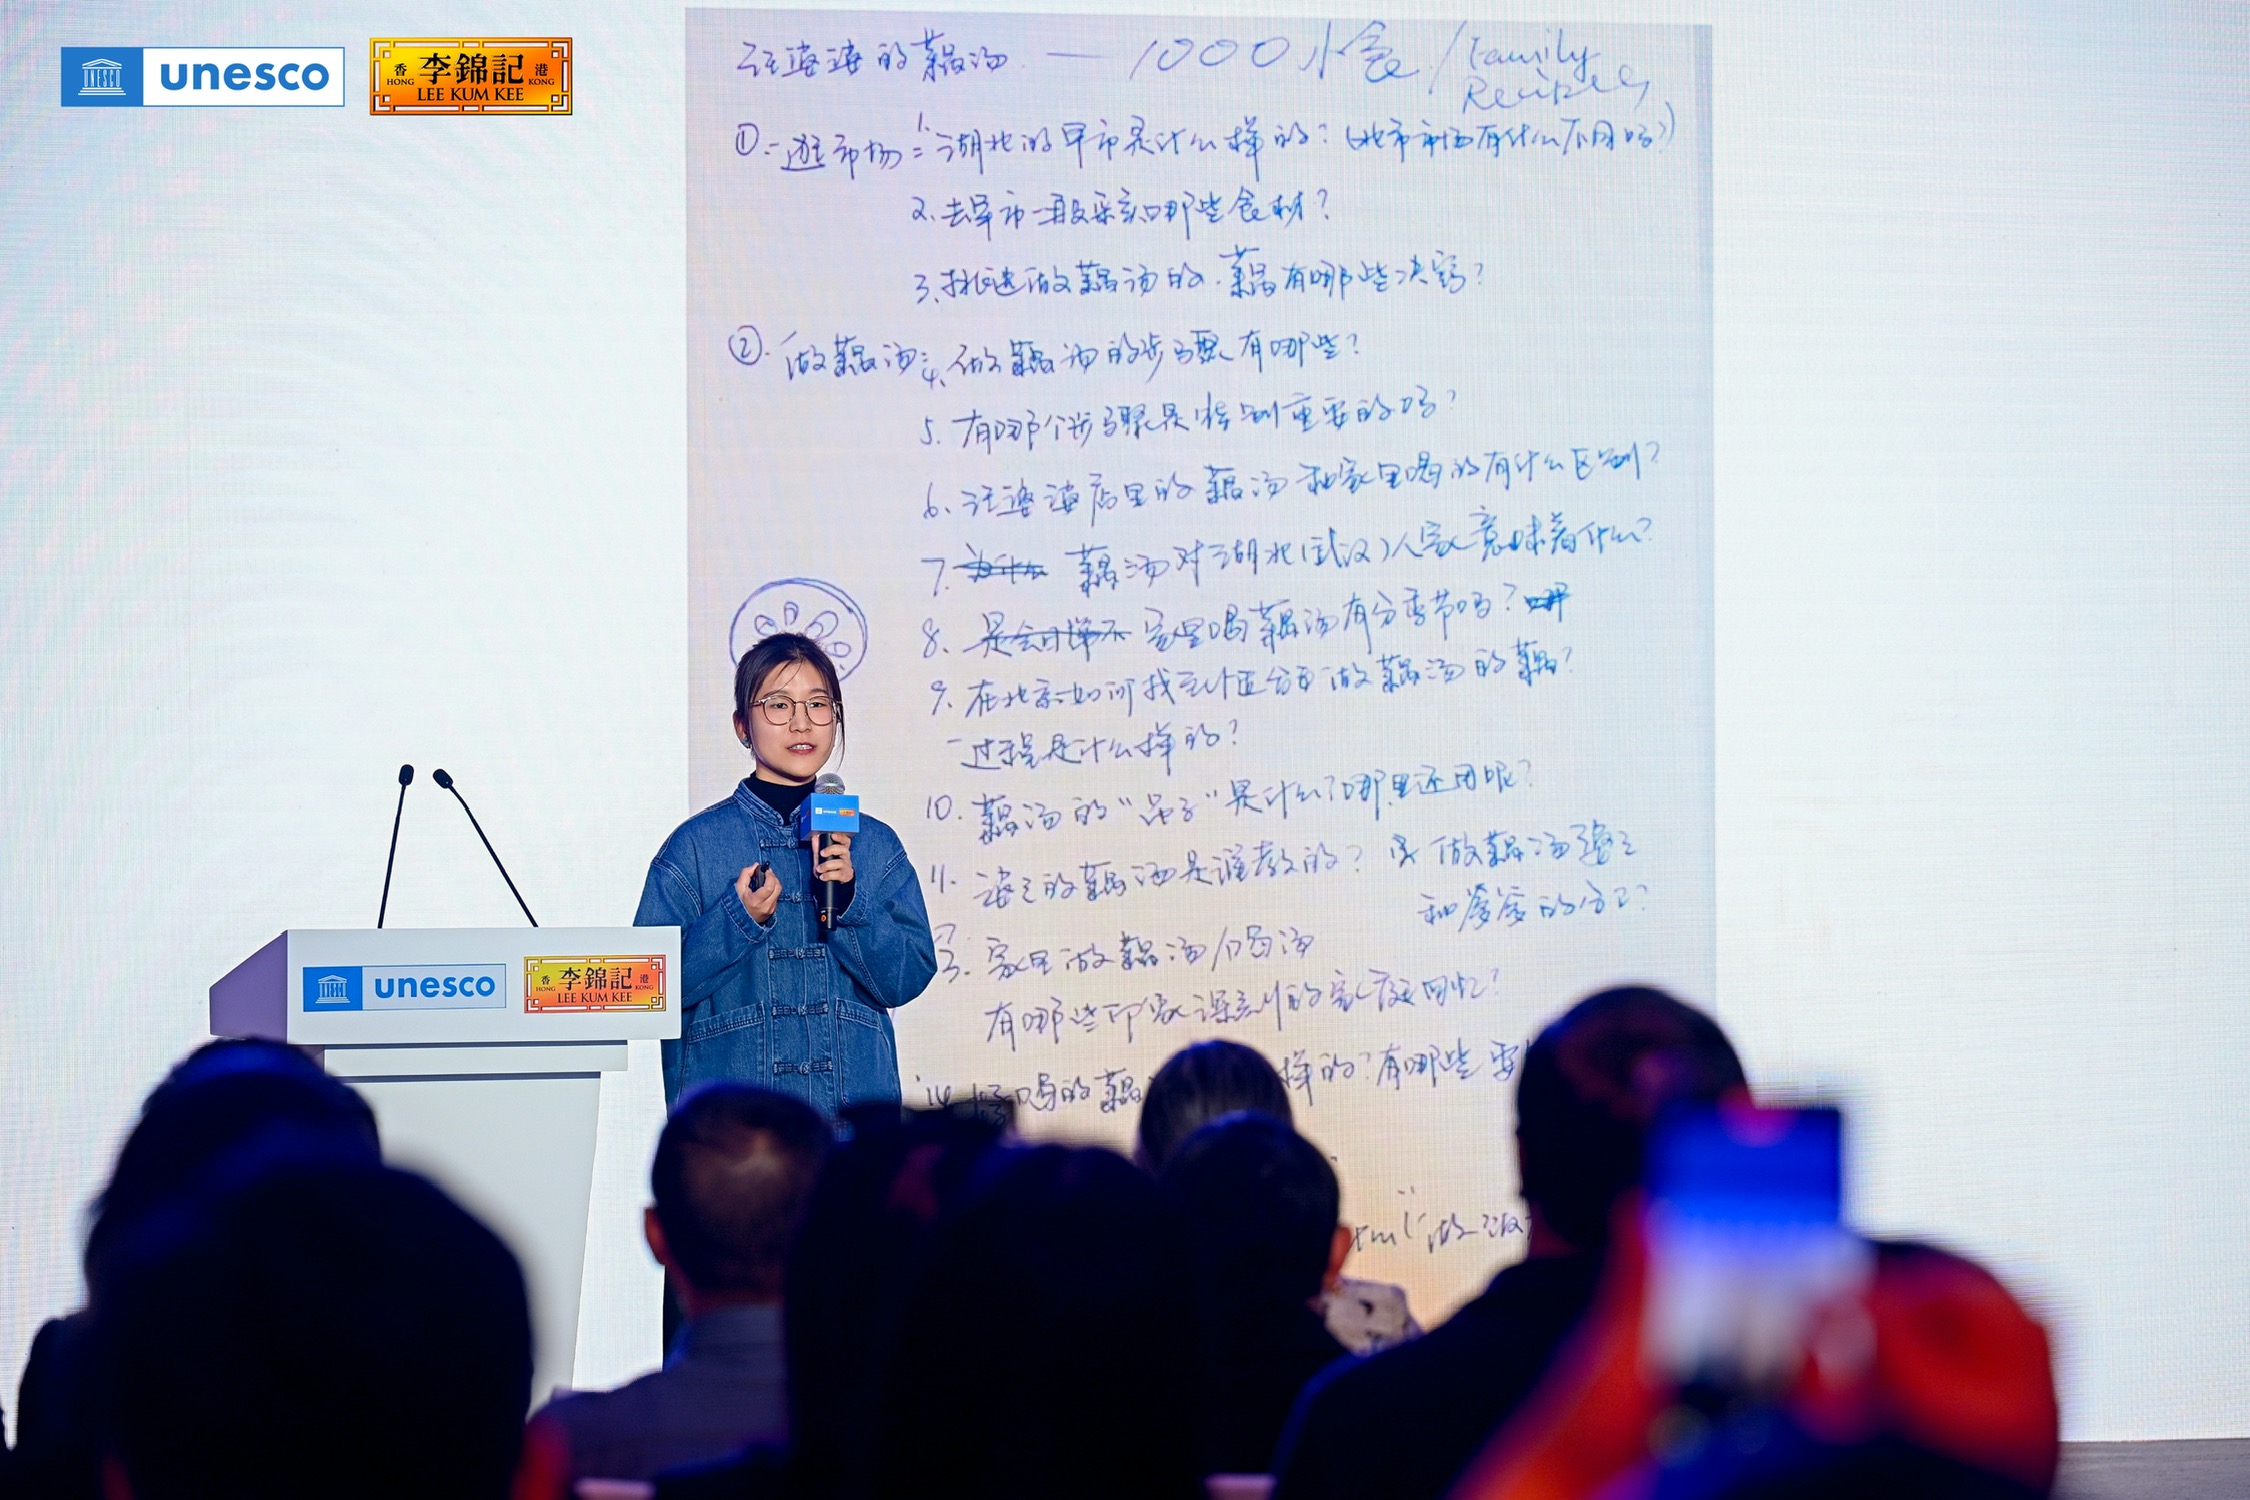 unesco
香 李錦記 港
HONG LEE KUM KEE KONG
汪婆婆的藕汤 — 1000小食/Family
Recipes
①. 逛市场: 1. 湖北的早市是什么样的? (北京市场有什么不同吗?)
2. 去早市一般采购哪些食材?
3. 挑选做藕汤的藕有哪些决窍?
②. 做藕汤: 4. 做藕汤的步骤有哪些?
5. 有哪个步骤是特别重要的吗?
6. 汪婆婆店里的藕汤和家里喝的有什么区别?
7. 为什么 藕汤对湖北(武汉)人家意味着什么?
8. 家里喝藕汤有分季节吗? 哪
9. 在北京如何找到适合做藕汤的藕?
过程是什么样的?
10. 藕汤的"品子"是什么?哪里还用呢?
11. 婆婆的藕汤是谁教的? 做藕汤婆婆
和爹爹的分工?
13. 家里做藕汤/喝汤
有哪些印象深刻的家庭回忆?
14. 好喝的藕 样的?有哪些要
unesco
香 李錦記 港
HONG LEE KUM KEE KONG
unesco